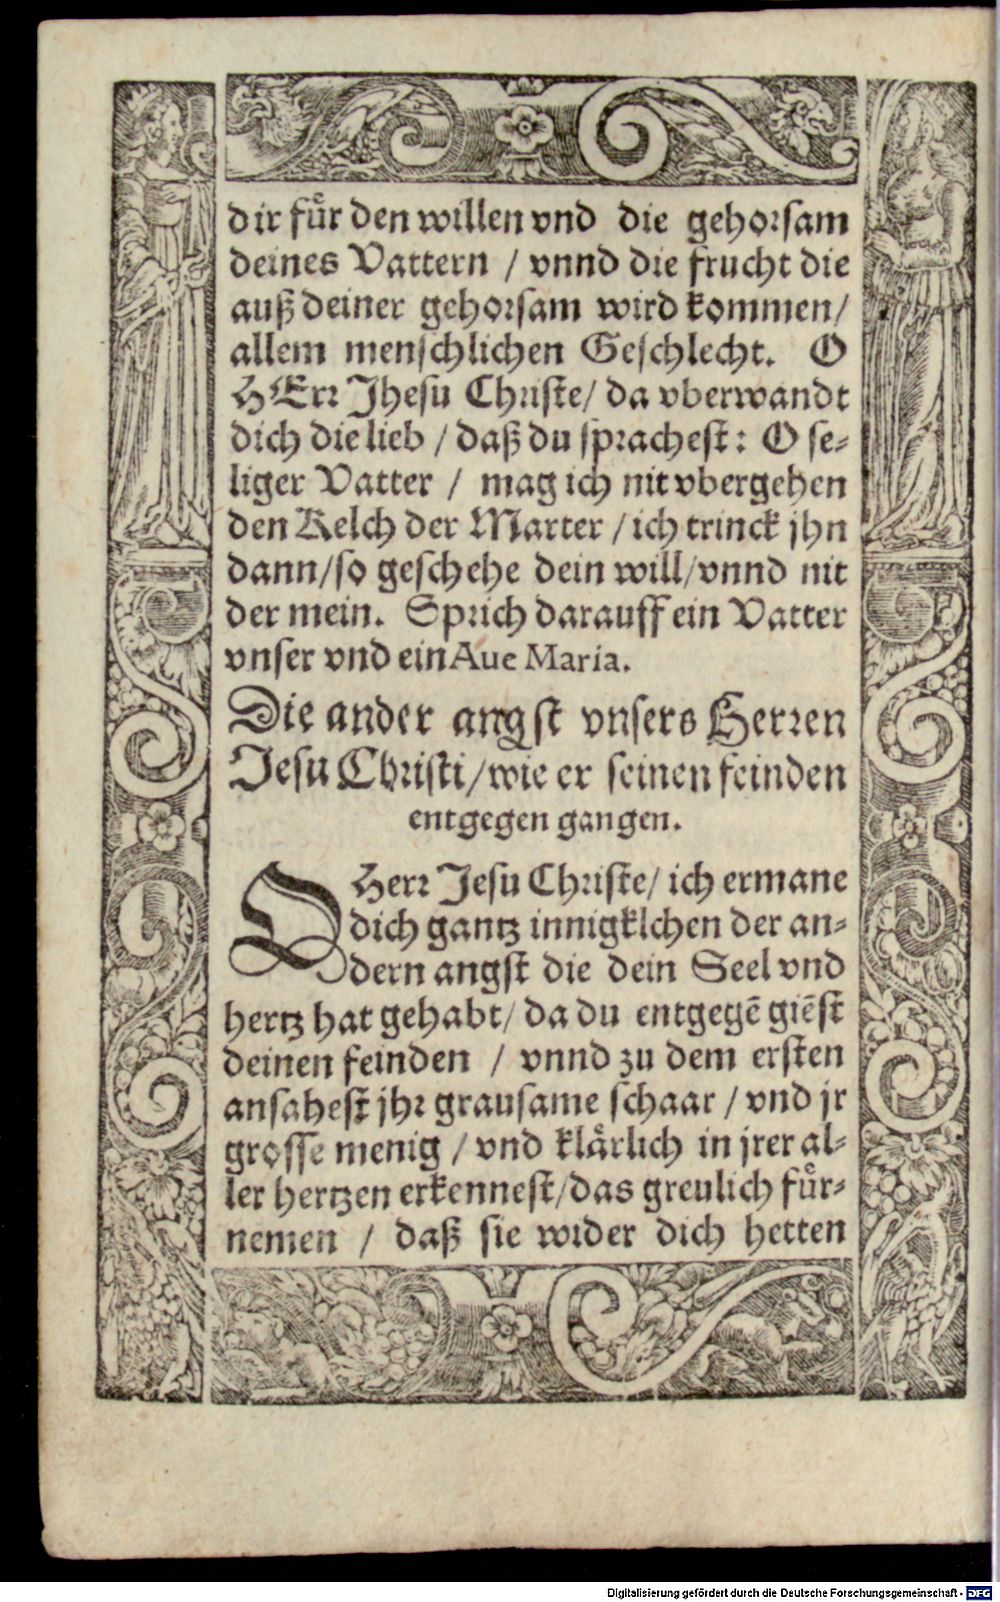 dir fuͤr den willen vnd die gehorsam
deines Vattern / vnnd die frucht die
auß deiner gehorsam wird kommen/
allem menschlichen Geschlecht. O
HErr Jhesu Christe/ da vberwandt
dich die lieb / daß du sprachest: O se-
liger Vatter / mag ich nit vbergehen
den Kelch der Marter / ich trinck jhn
dann/so geschehe dein will/vnnd nit
der mein. Sprich darauff ein Vatter
vnser vnd ein Aue Maria.
Die ander angst vnsers Herren
Jesu Christi/wie er seinen feinden
entgegen gangen.
O Herr Jesu Christe/ ich ermane
dich gantz innigklchen der an-
dern angst die dein Seel vnd
hertz hat gehabt/ da du entgegē giēst
deinen feinden / vnnd zu dem ersten
ansahest jhr grausame schaar / vnd jr
grosse menig / vnd klaͤrlich in jrer al-
ler hertzen erkennest/das greulich fuͤr-
nemen / daß sie wider dich hetten
Digitalisierung gefördert durch die Deutsche Forschungsgemeinschaft - DFG